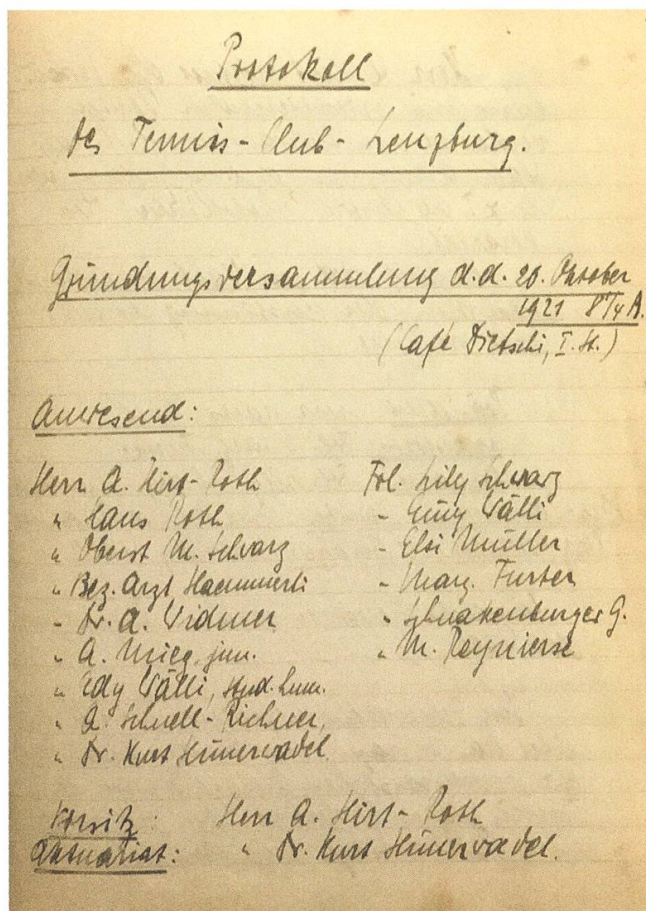 Protokoll
des Tennis-Club-Lenzburg.
Gründungsversammlung d.d. 20. Oktober
1921 8¼ A.
(Café Dietschi, I. St.)
Anwesend:
Herr A. Hirt-Roth
" Hans Roth
" Oberst M. Schwarz
" Bez. Arzt Haemmerli
" Dr. A. Widmer
" A. Mieg, jun.
" Edy Wälli, stud.
" A. Schnell-Richner,
" Dr. Kurt Hünerwadel
Frl. Lily Schwarz
" Emy Wälli
" Elsi Müller
" Marg. Furter
" Schnakenburger G.
" M. Reynierse
Vorsitz: Herr A. Hirt-Roth
Aktuariat: " Dr. Kurt Hünerwadel.